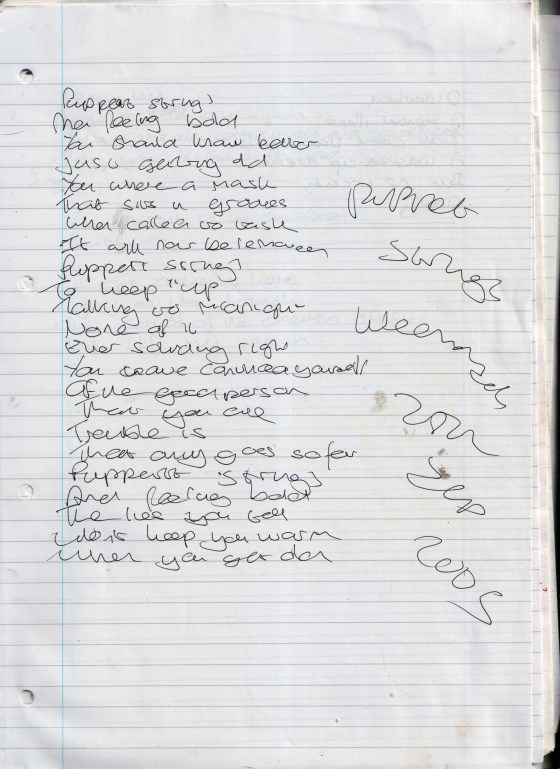 Puppets strings
Are feeling bold
You should know better
Just getting old
You where a mask
That sits in grooves
When called to task
It will not be removed
Puppets strings
To keep up
Talking to
None of it
Ever sounding right
You have convinced yourself
Of the good person
That you are
Trouble is
That only goes so far
Puppets strings
And feeling bold
The lies you tell
Wont keep you warm
When you get old
Puppet
Strings
Wednesday
20th
Sep
2005